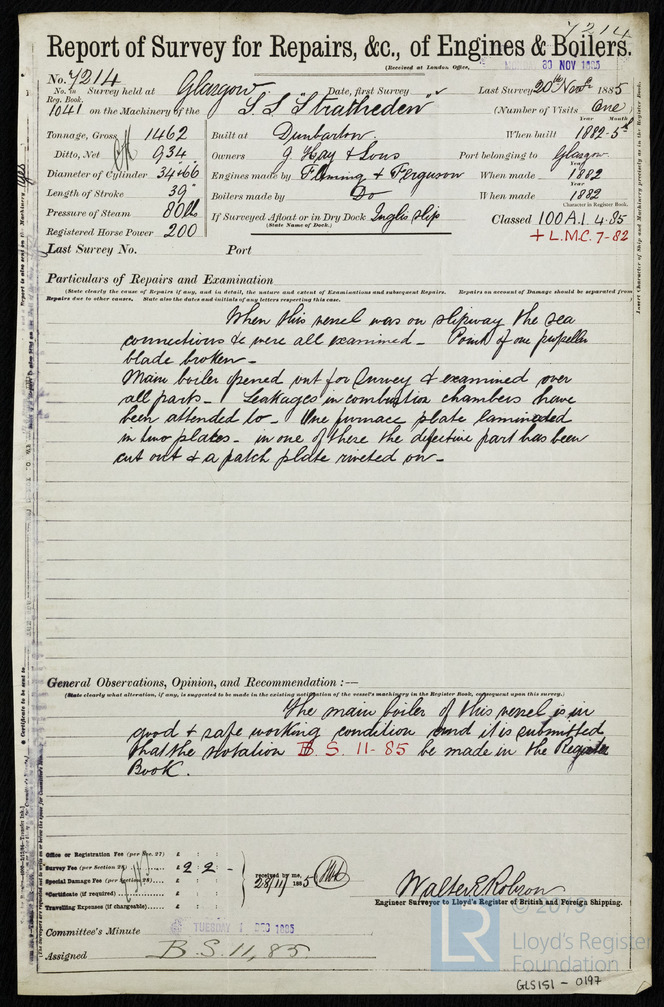 7214
Report of Survey for Repairs, &c., of Engines & Boilers.
(Received at London Office, MONDAY 30 NOV 1885
No. 7214
No. in Reg. Book. 1041
Survey held at Glasgow Date, first Survey Last Survey 20th Novr 1885
on the Machinery of the S.S. "Stratheden" (Number of Visits One)
Tonnage, Gross 1462 Built at Dunbarton. When built Year 1882 - Month 5th
Ditto, Net 934 Owners J. Hay & Sons Port belonging to Glasgow
Diameter of Cylinder 34 + 66 Engines made by Fleming & Ferguson When made Year 1882
Length of Stroke 39" Boilers made by Do When made Year 1882
Pressure of Steam 80 lbs If Surveyed Afloat or in Dry Dock Inglis Slip
(State Name of Dock.)
Character in Register Book.
Classed 100 A.1. 4.85
Registered Horse Power 200 + L.M.C. 7-82
Last Survey No. Port
Particulars of Repairs and Examination
(State clearly the cause of Repairs if any, and in detail, the nature and extent of Examinations and subsequent Repairs. Repairs on account of Damage should be separated from
Repairs due to other causes. State also the dates and initials of any letters respecting this case.
When this vessel was on slipway the sea
connections &c were all examined - Point of one propeller
blade broken -
Main boiler opened out for Survey & examined over
all parts - Leakages in combustion chambers have
been attended to - One furnace plate laminated
in two places - in one of there the defective part has been
cut out & a patch plate riveted on -
General Observations, Opinion, and Recommendation :—
(State clearly what alteration, if any, is suggested to be made in the existing notification of the vessel's machinery in the Register Book, consequent upon this survey.)
The main boiler of this vessel is in
good & safe working condition and it is submitted
that the notation B.S. 11-85 be made in the Register
Book.
Office or Registration Fee (per Sec. 27) £ : :
Survey Fee (per Section 28) £ 2 : 2 : -
Special Damage Fee (per Section 28) £ : :
*Certificate (if required) £ : :
Travelling Expenses (if chargeable) £ : :
received by me,
28/11/1885
Walter E Robson
Engineer Surveyor to Lloyd's Register of British and Foreign Shipping.
Committee's Minute TUESDAY 1 DEC 1885
Assigned B.S. 11,85
© 2019
LR
Lloyd's Register
Foundation
GLS151 - 0197